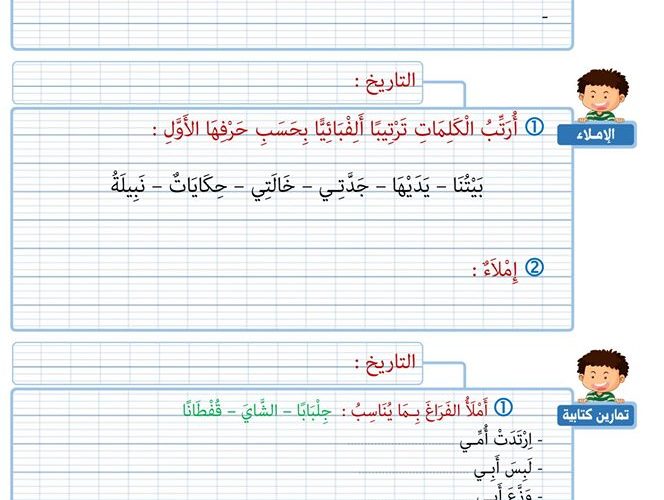 -
التاريخ :
الإملاء
① أُرَتِّبُ الْكَلِمَاتِ تَرْتِيبًا أَلِفْبَائِيًّا بِحَسَبِ حَرْفِهَا الأَوَّلِ :
بَيْتُنَا – يَدَيْهَا – جَدَّتِي – خَالَتِي – حِكَايَاتٌ – نَبِيلَةُ
② إِمْلاَءٌ :
التاريخ :
تمارين كتابية
① أَمْلَأُ الفَرَاغَ بِمَا يُنَاسِبُ : جِلْبَابًا – الشَّايَ – قُفْطَانًا
- اِرْتَدَتْ أُمِّي
- لَبِسَ أَبِي ..............................
- وَزَّعَ أَبِي